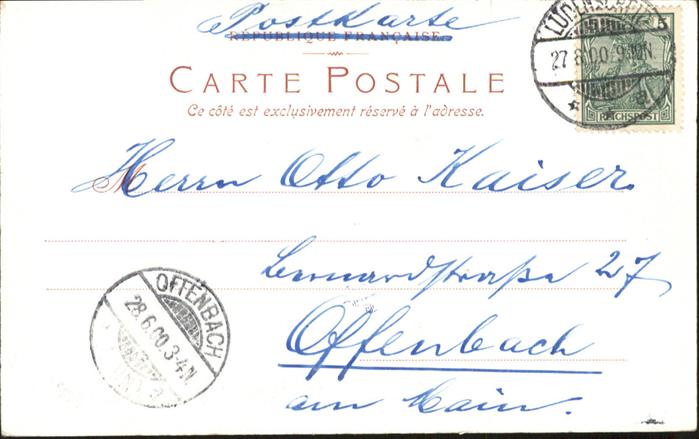 Postkarte
RÉPUBLIQUE FRANÇAISE
CARTE POSTALE
Ce côté est exclusivement réservé à l'adresse.
5
27 6 00 9-10N
REICHSPOST
Herrn Otto Kaiser.
Bernardstraße 27
Offenbach
am Main.
OFFENBACH
28.6.00.3-4N.